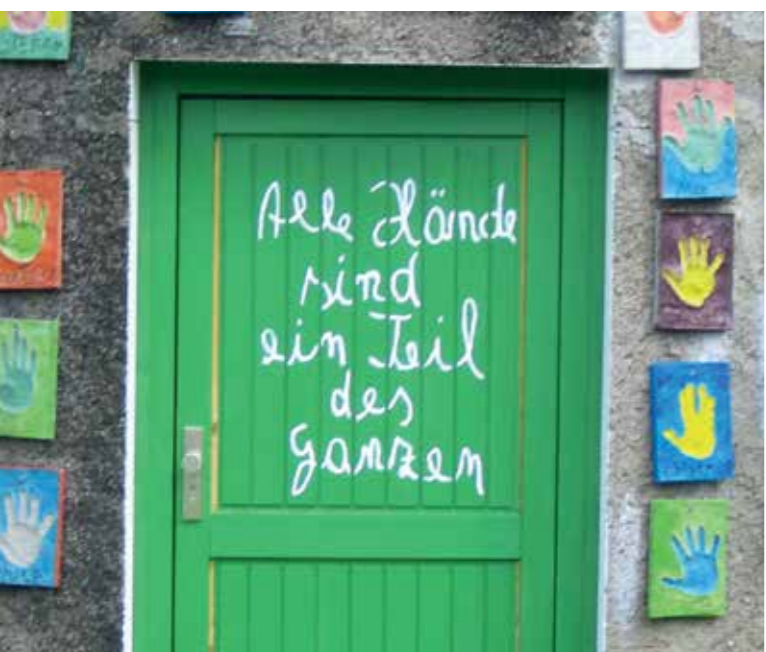 Alle Hände
sind
ein Teil
des
Ganzen